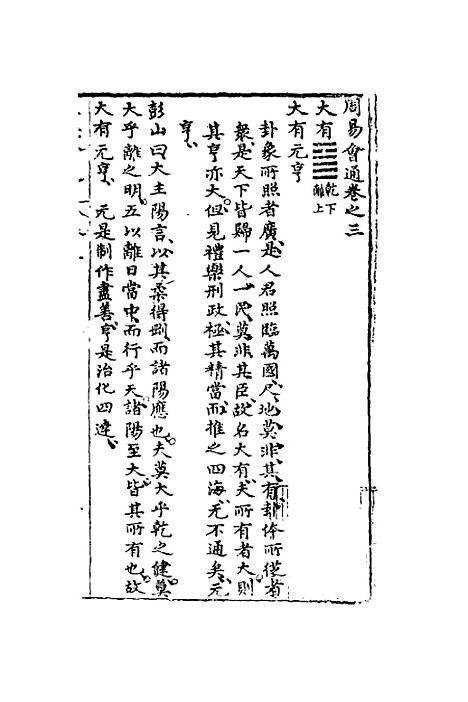 周易會通卷之三
大有 乾下 離上
大有元亨
卦象所照者廣是人君照臨萬國尺地莫非其有卦体所從者
衆是天下皆歸一人一民莫非其臣故名大有夫所有者大則
其亨亦大但見禮樂刑政極其精當而推之四海无不通矣元
亨
彭山曰大主陽言以其柔得剛而諸陽應也夫莫大乎乾之健莫
大乎離之明五以離日當中而行乎天諸陽至大皆其所有也故
大有元亨 元是制作盡善亨是治化四達